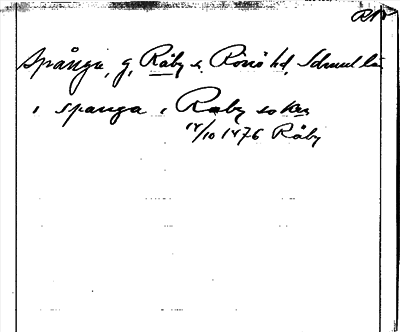 Spånga, g, Råby s, Rönö hd, Sdml lä
i spanga i Raby soken
14/10 1476 Råby